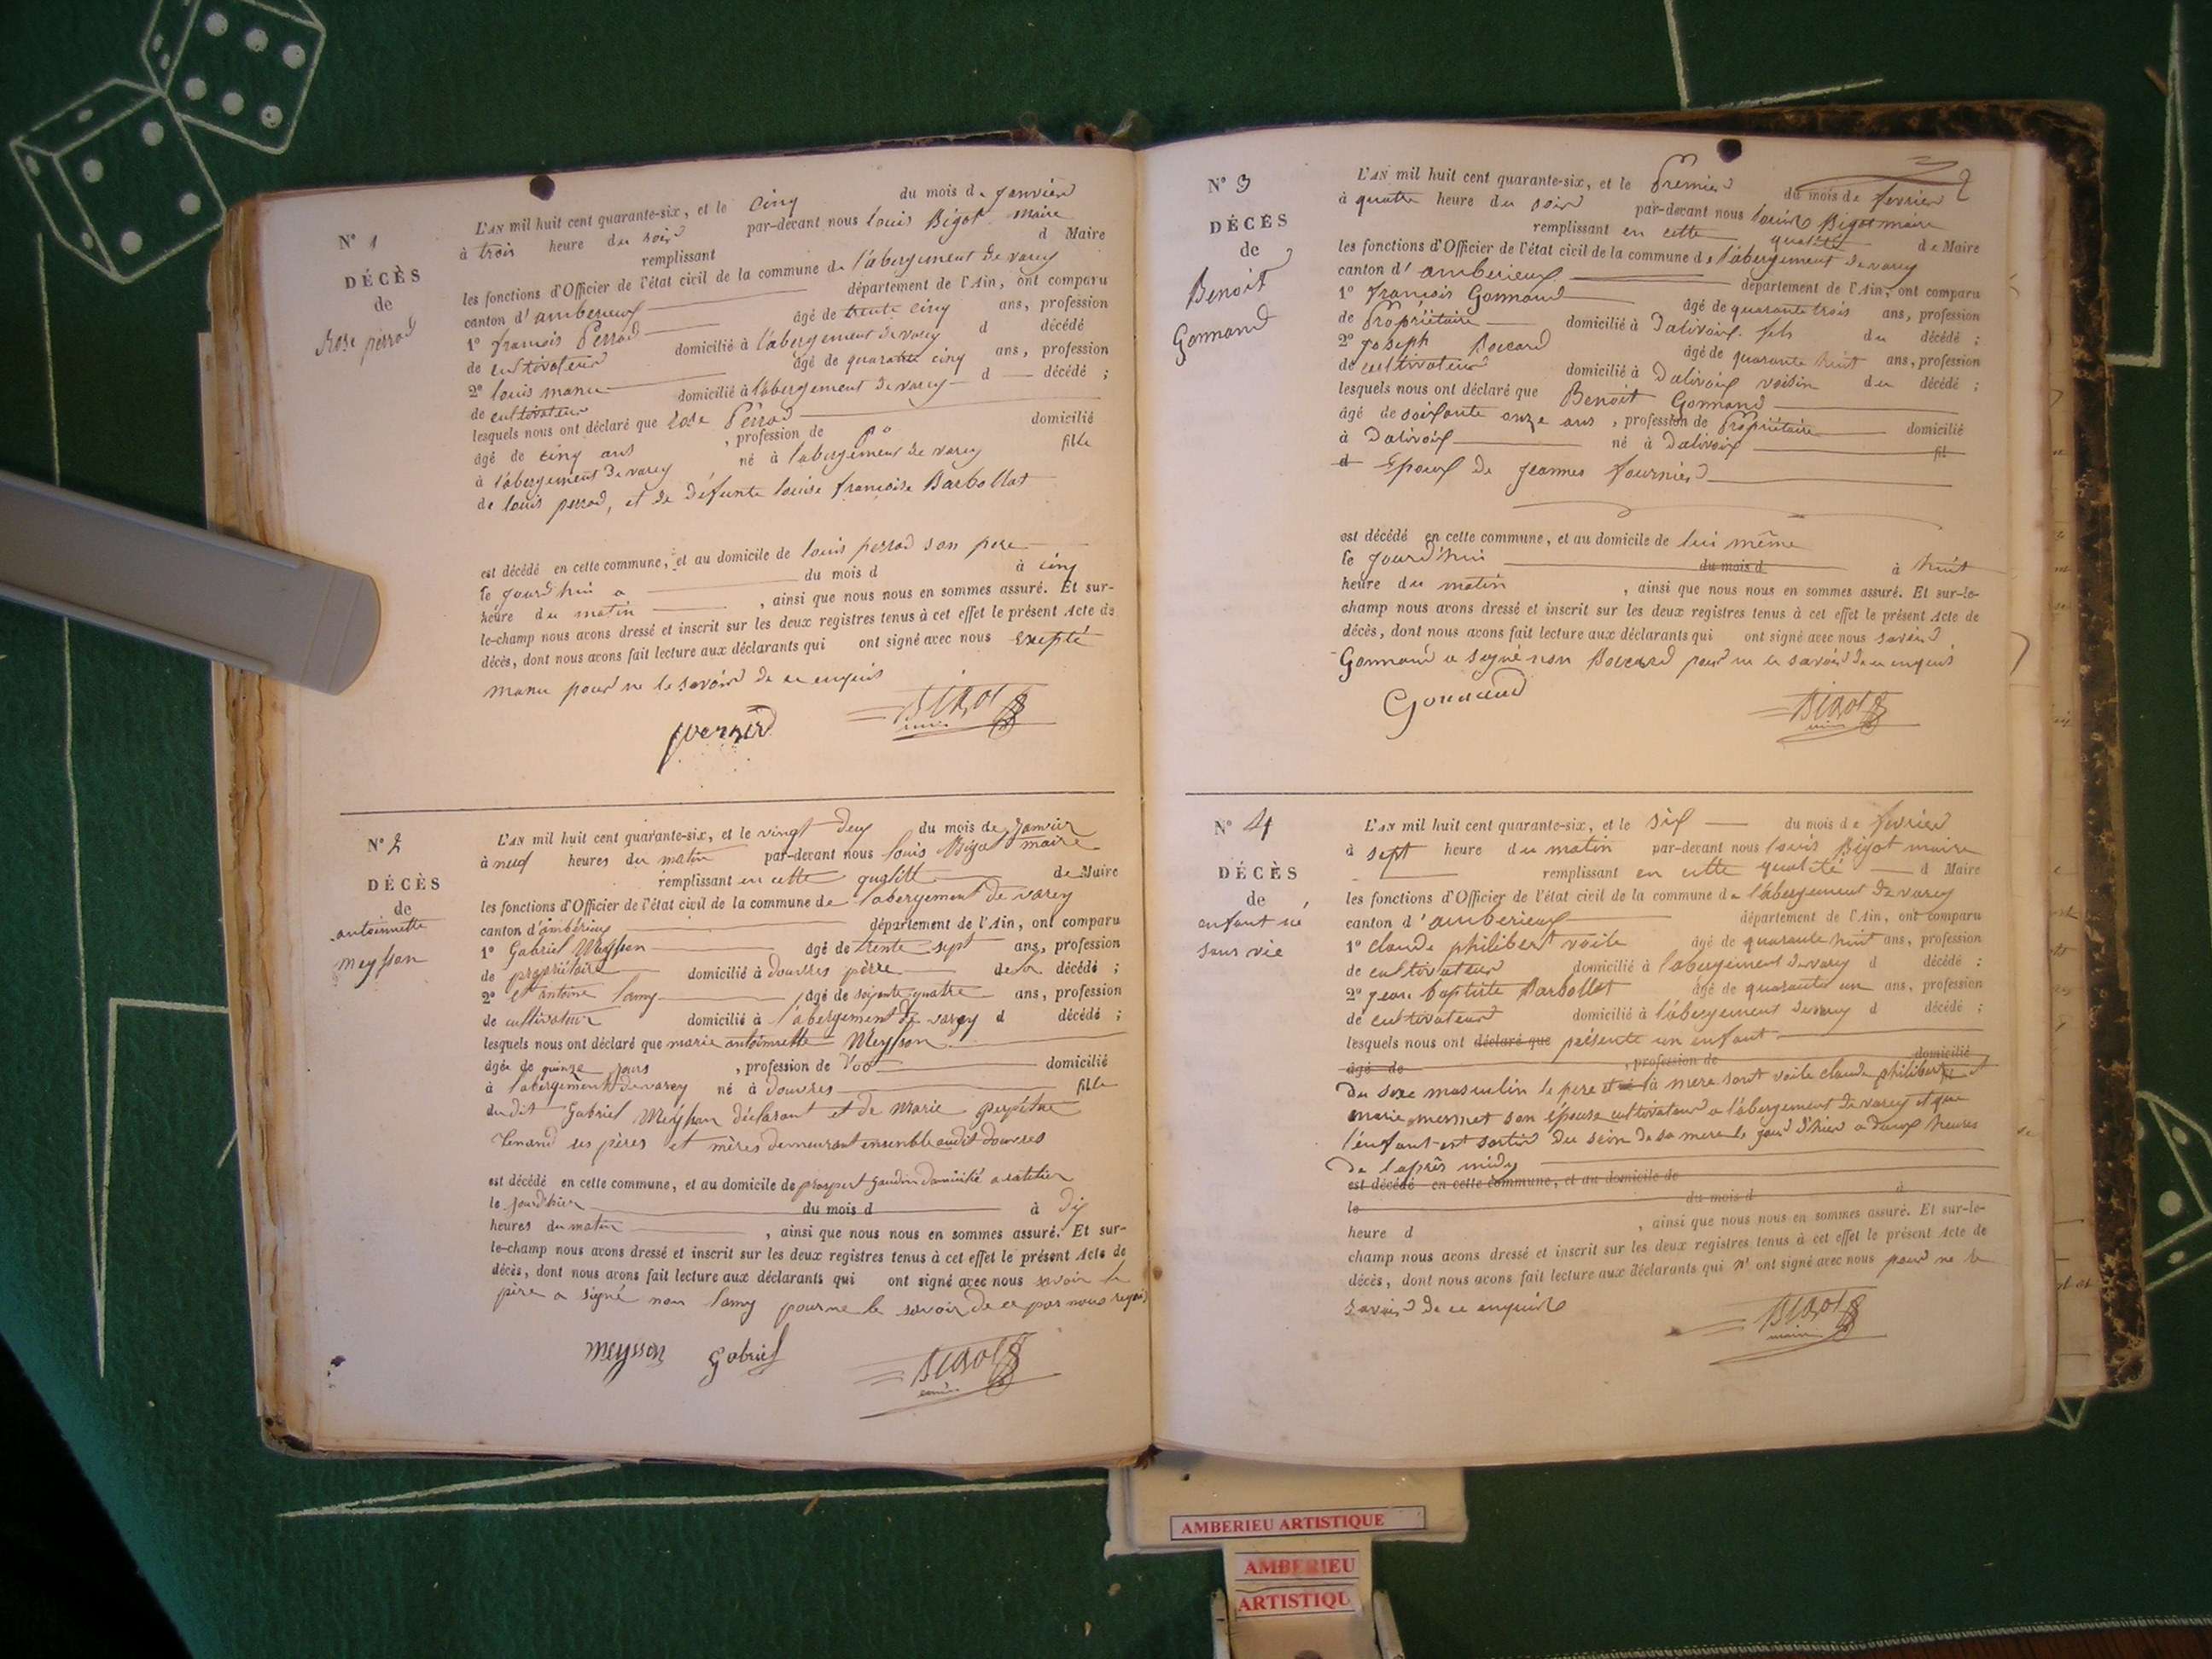 N° 1
DÉCÈS
de
Rose perrod
L'AN mil huit cent quarante-six, et le cinq du mois de Janvier
à trois heure du soir par-devant nous louis Bigot maire
remplissant d Maire
les fonctions d'Officier de l'état civil de la commune de l'abergement de varey
canton d'amberieux département de l'Ain, ont comparu
1° françois Perrod âgé de trente cinq ans, profession
de cultivateur domicilié à l'abergement de varey d décédé
2° louis manu âgé de quarante cinq ans, profession
de cultivateur domicilié à l'abergement de varey d décédé ;
lesquels nous ont déclaré que Rose Perrod
âgé de cinq ans , profession de domicilié
à l'abergement de varey né à l'abergement de varey fille
de louis perrod, et de défunte louise françoise Barbollat
est décédé en cette commune, et au domicile de louis perrod son pere
le jourd'hui a du mois d à cinq
heure du matin , ainsi que nous nous en sommes assuré. Et sur-
le-champ nous avons dressé et inscrit sur les deux registres tenus à cet effet le présent Acte de
décès, dont nous avons fait lecture aux déclarants qui ont signé avec nous excepté
manu pour ne le savoir de ce enquis
Bigot
N° 2
DÉCÈS
de
antoinette
meysson
L'AN mil huit cent quarante-six, et le vingt deux du mois de Janvier
à neuf heures du matin par-devant nous louis Bigot maire
remplissant en cette qualité de Maire
les fonctions d'Officier de l'état civil de la commune de l'abergement de varey
canton d'ambérieux département de l'Ain, ont comparu
1° Gabriel Meysson âgé de trente sept ans, profession
de propriétaire domicilié à douvres père de la décédé ;
2° et antoine lamy âgé de soixante quatre ans, profession
de cultivateur domicilié à l'abergement de varey d décédé ;
lesquels nous ont déclaré que marie antoinette Meysson
âgée de quinze jours , profession de domicilié
à l'abergement de varey né à douvres fille
du dit Gabriel Meysson déclarant et de Marie perpétue
Tenand ses pères et mères demeurant ensemble audit douvres
est décédé en cette commune, et au domicile de prospert gaudin domicilié a
le jourd'hier du mois d à dix
heures du matin , ainsi que nous nous en sommes assuré. Et sur-
le-champ nous avons dressé et inscrit sur les deux registres tenus à cet effet le présent Acte de
décès, dont nous avons fait lecture aux déclarants qui ont signé avec nous savoir le
père a signé non lamy pour ne le savoir de ce par nous requis
meysson gabriel Bigot
maire
N° 3
DÉCÈS
de
Benoit
Gonnand
2
L'AN mil huit cent quarante-six, et le Premier du mois de fevrier
à quatre heure du soir par-devant nous louis Bigot maire
remplissant en cette qualité de Maire
les fonctions d'Officier de l'état civil de la commune de l'abergement de varey
canton d'amberieux département de l'Ain, ont comparu
1° françois Gonnand âgé de quarante trois ans, profession
de Propriétaire domicilié à Dalivoix fils du décédé ;
2° Joseph Boccard âgé de quarante huit ans, profession
de cultivateur domicilié à Dalivoix voisin du décédé ;
lesquels nous ont déclaré que Benoit Gonnand
âgé de soixante onze ans , profession de Propriétaire domicilié
à Dalivoix né à Dalivoix fil
d Epoux de Jeannes fournier
est décédé en cette commune, et au domicile de lui même
le jourd'hui du mois d à huit
heure du matin , ainsi que nous nous en sommes assuré. Et sur-le-
champ nous avons dressé et inscrit sur les deux registres tenus à cet effet le présent Acte de
décès, dont nous avons fait lecture aux déclarants qui ont signé avec nous savoir
Gonnand a signé non Boccard pour ne le savoir de ce enquis
Gonnand Bigot
maire
N° 4
DÉCÈS
de
enfant né
sans vie
L'AN mil huit cent quarante-six, et le six du mois de fevrier
à sept heure du matin par-devant nous louis Bigot maire
remplissant en cette qualité d Maire
les fonctions d'Officier de l'état civil de la commune de l'abergement de varey
canton d'amberieux département de l'Ain, ont comparu
1° claude philibert voile âgé de quarante huit ans, profession
de cultivateur domicilié à l'abergement de varey d décédé ;
2° jean baptiste Barbollat âgé de quarante un ans, profession
de cultivateur domicilié à l'abergement de varey d décédé ;
lesquels nous ont déclaré que présente un enfant
âgé de , profession de domicilié
du sexe masculin le pere et la mere sont voile claude philibert et
marie mermet son épouse cultivateur a l'abergement de varey et que
l'enfant est sortir du sein de sa mere le jour d'hier a deux heures
de l'après midy
est décédé en cette commune, et au domicile de
le du mois d à
heure d , ainsi que nous nous en sommes assuré. Et sur-le-
champ nous avons dressé et inscrit sur les deux registres tenus à cet effet le présent Acte de
décès, dont nous avons fait lecture aux déclarants qui n' ont signé avec nous pour ne le
savoir de ce enquis
Bigot
maire
AMBERIEU ARTISTIQUE
AMBERIEU
ARTISTIQU